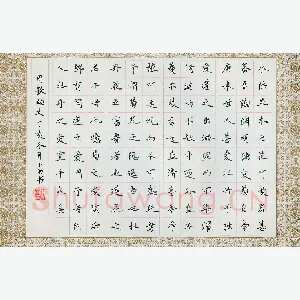 水陸草木之花可愛者甚
蕃晉陶淵明獨愛菊自李
唐來世人甚愛牡丹予獨
愛蓮之出淤泥而不染濯
清漣而不妖中通外直不
蔓不枝香遠益清亭亭淨
植可遠觀而不可褻玩焉
予謂菊花之隱逸者也牡
丹花之富貴者也蓮花之
君子者也噫菊之愛陶後
鮮有聞蓮之愛同予者何
人牡丹之愛宜乎眾矣
shufawang.cn